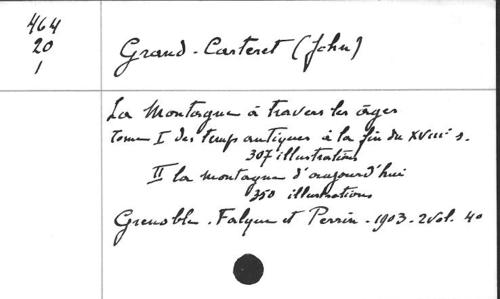 464
20
1
Grand-Carteret (John)
La Montagne à travers les âges
Tome I Des temps antiques à la fin du XVIIIe s.
307 illustrations
II La montagne d'aujourd'hui
350 illustrations
Grenoble. Falque et Perrin - 1903 - 2 vol. 4o